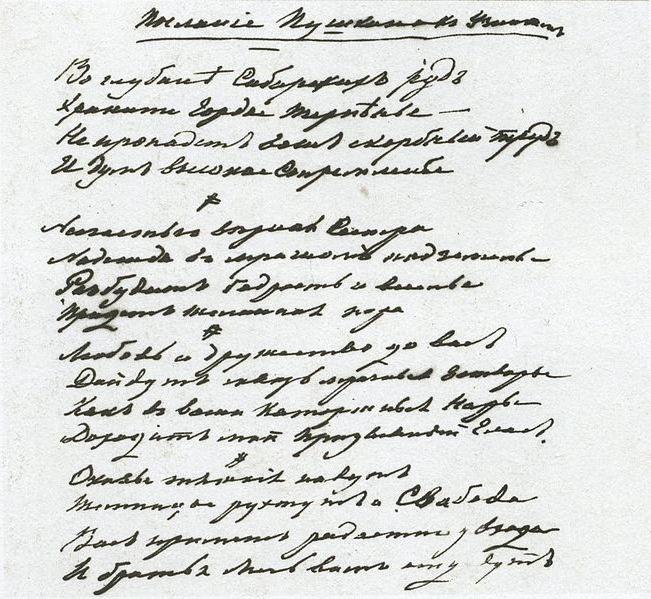 Посланіе Пушкина къ
Во глубинѣ Сибирскихъ рудъ
Храните гордое терпѣнье —
Не пропадетъ вашъ скорбный трудъ
И думъ высокое стремленье
Несчастью вѣрная сестра
Надежда въ мрачномъ подземельѣ
Разбудитъ бодрость и веселье
Придетъ желанная пора
Любовь и дружество до васъ
Дойдутъ сквозь мрачные затворы
Какъ въ ваши каторжные норы
Доходитъ мой призывный гласъ.
Оковы тяжкія падутъ
Темницы рухнутъ и Свобода
Васъ приметъ радостно у входа
И братья мечь вамъ отдадутъ